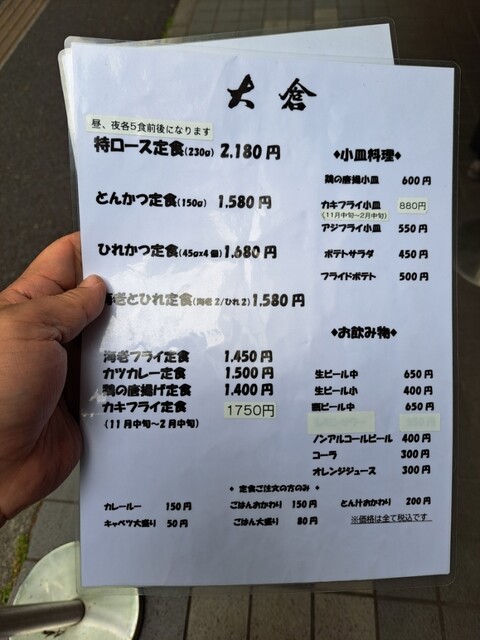 大倉
昼、夜各5食前後になります
特ロース定食(230g) 2.180円
とんかつ定食(150g) 1.580円
ひれかつ定食(45g×4個) 1.680円
海老とひれ定食(海老2/ひれ2) 1.580円
海老フライ定食 1.450円
カツカレー定食 1.500円
鶏の唐揚げ定食 1.400円
カキフライ定食 1750円
(11月中旬〜2月中旬)
◆小皿料理◆
鶏の唐揚小皿 600円
カキフライ小皿 880円
(11月中旬〜2月中旬)
アジフライ小皿 550円
ポテトサラダ 450円
フライドポテト 500円
◆お飲み物◆
生ビール中 650円
生ビール小 400円
瓶ビール中 650円
ノンアルコールビール 400円
コーラ 300円
オレンジジュース 300円
◆ 定食ご注文の方のみ ◆
カレールー 150円 ごはんおかわり 150円 とん汁おかわり 200円
キャベツ大盛り 50円 ごはん大盛り 80円 ※価格は全て税込です